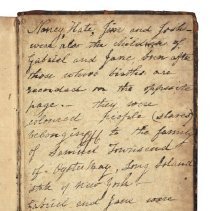 Nancy, Kate, Jim and Josh
were also the children of
Gabriel and Jane born after
those whose births are
recorded on the opposite
page — they were
coloured people (slaves)
belonging to the family
of Samuel Townsend
of Oysterbay, Long Island
state of New York
Gabriel and Jane were